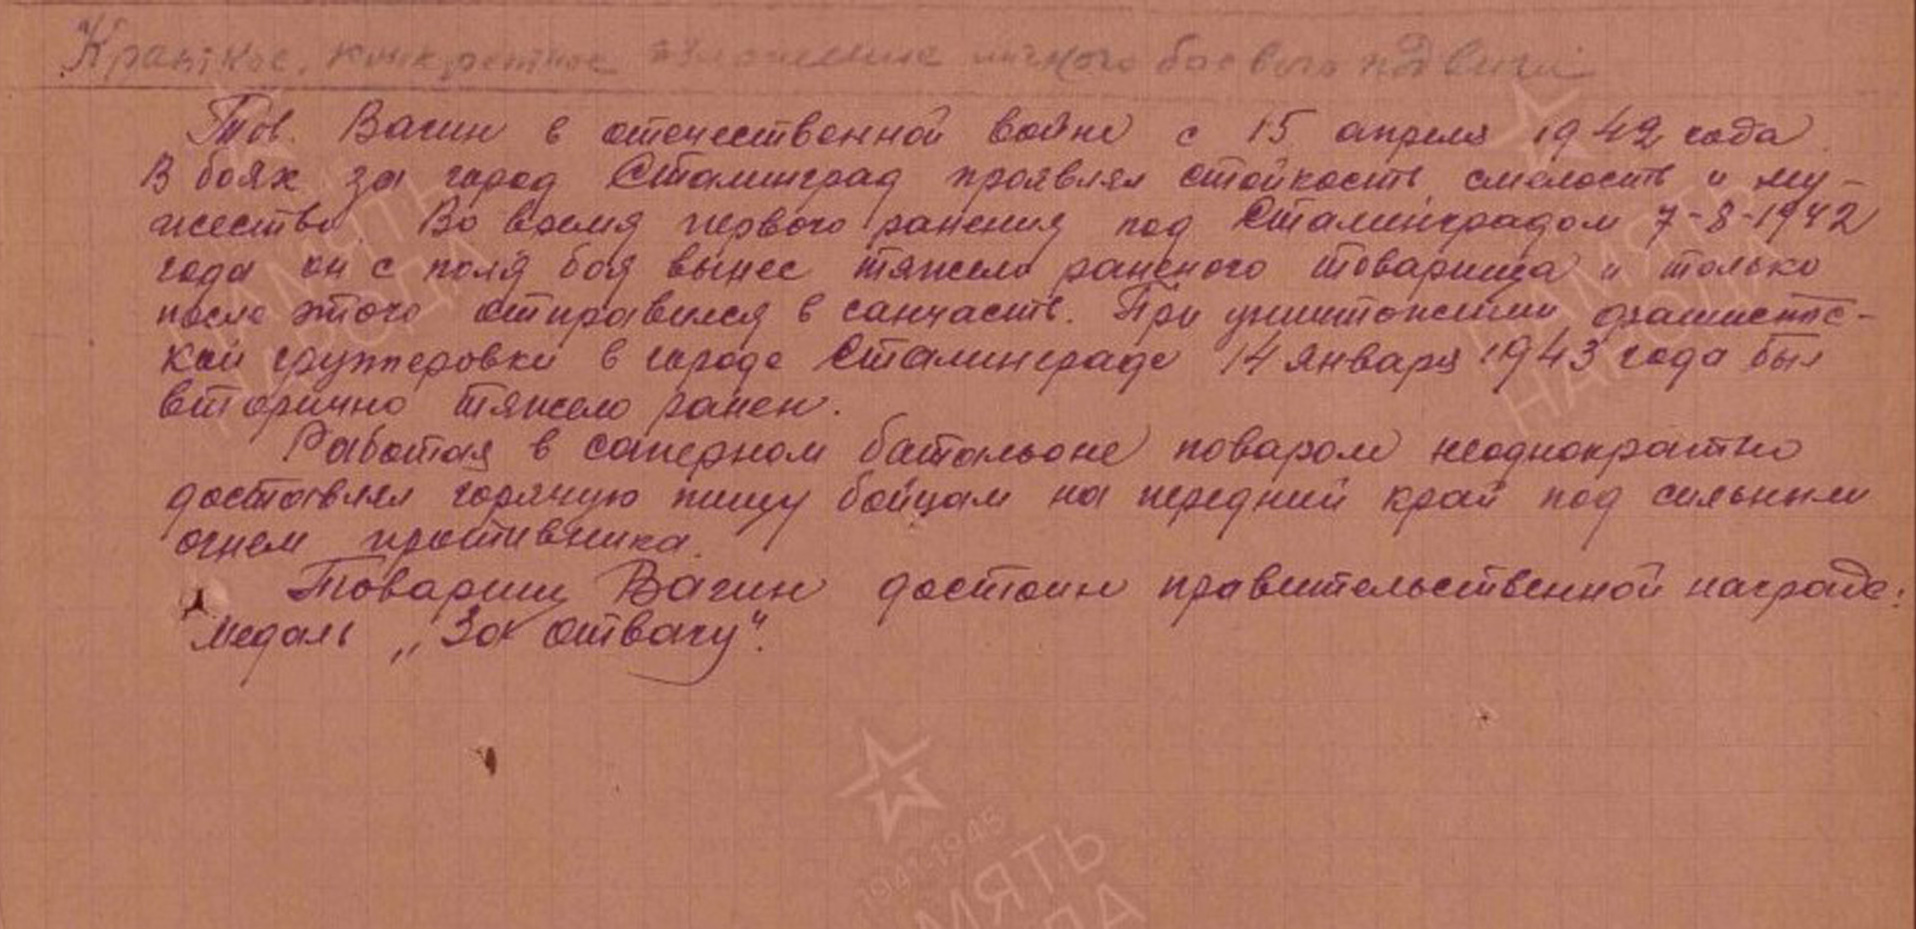 Краткое, конкретное изложение личного боевого подвига
Тов. Вагин в отечественной войне с 15 апреля 1942 года
В боях за город Сталинград проявлял стойкость, смелость и му-
жество. Во время первого ранения под Сталинградом 7-8-1942
года он с поля боя вынес тяжело раненого товарища и только
после этого отправился в санчасть. При уничтожении фашистс-
кой группировки в городе Сталинграде 14 января 1943 года был
вторично тяжело ранен.
Работая в саперном батальоне поваром неоднократно
доставлял горячую пищу бойцам на передний край под сильным
огнем противника.
Товарищ Вагин достоин правительственной награде:
медаль „За отвагу".
ПАМЯТЬ
НАРОДА
ПАМЯТЬ
НАРОДА
1941-1945